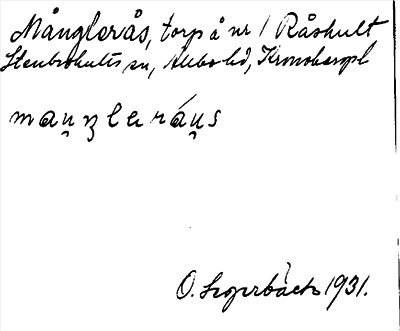 Månglerås, torp å nr 1 Råshult
Stenbrohults sn, Allbo hd, Kronobergs l
maṷnzleráṷs
O. 1931.